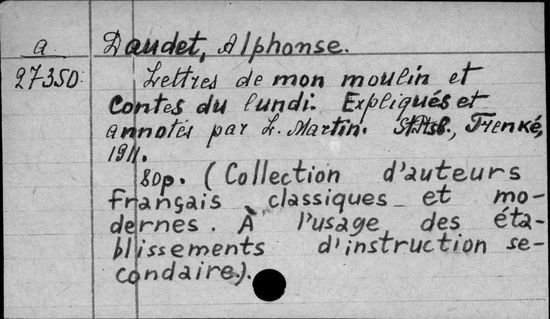 a Daudet, Alphonse.
27350. Lettres de mon moulin et
Contes du lundi. Expliqués et
annotés par L. Martin. St.Ptsb., Trenké,
1911.
80p. (Collection d'auteurs
français classiques et mo-
dernes. À l'usage des éta-
blissements d'instruction se-
condaire.).